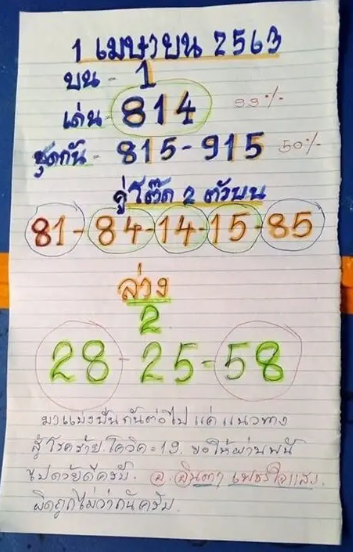 1 เมษายน 2563
บน - 1
เด่น - 814 99%
ชุดกัน - 815 - 915 50%
คู่โต๊ด 2 ตัวบน
81 - 84 - 14 - 15 - 85
ล่าง
2
28 - 25 - 58
มาแบ่งปันกันต่อไป แค่แนวทาง
สู้โรคร้ายโควิด = 19. ขอให้ผ่านพ้น
ไปด้วยดีครับ. อ. จินตา
ผิดถูกไม่ว่ากันครับ.